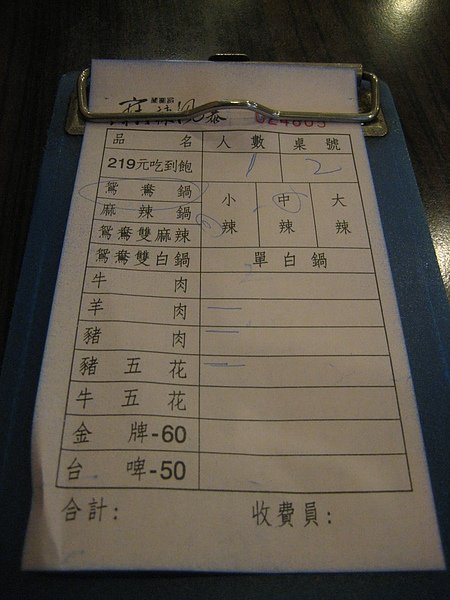 品 名 人 數 桌 號
219元吃到飽 1 2
鴛 鴦 鍋 小辣 中辣 大辣
麻 辣 鍋
鴛鴦雙麻辣
鴛鴦雙白鍋 單 白 鍋
牛 肉
羊 肉 一
豬 肉 一
豬 五 花 一
牛 五 花
金 牌-60
台 啤-50
合計: 收費員: